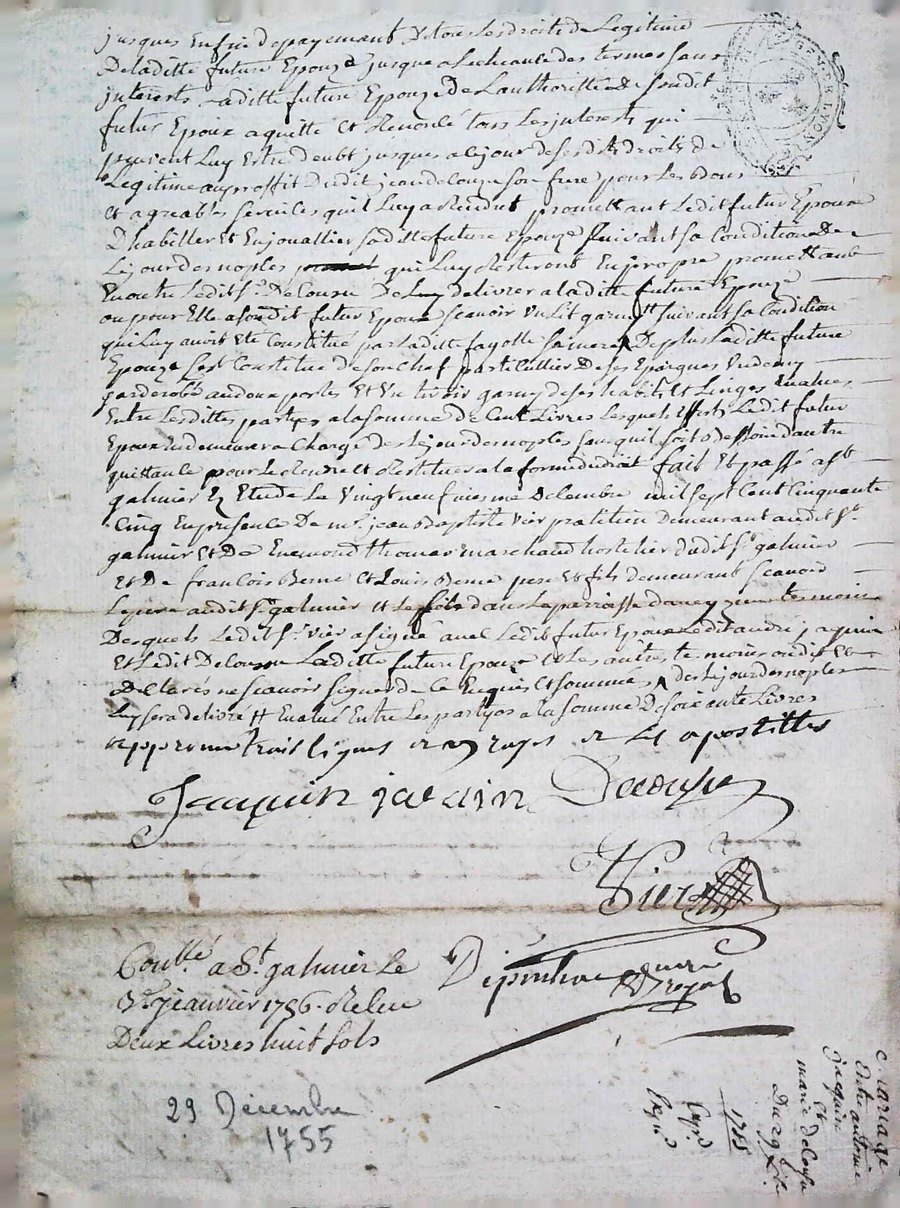 jusques Enfin de payemant De tous Les droits de Legitime
De laditte future Epouze jusque a Lecheance des termes sans
interests Laditte future Epouze De Lauthoritté de sondit
futur Epoux a quitté Et Remorlé tous Les interests qui
peuvent Luy Estre deubt jusques a Le jour de sesdits droits de
Legitime au proffit Dudit jean decouze son frere pour Les bons
Et agreables services quil Luy a Rendut promettant Ledit futur Epoux
Dhabiller Et Enjouallier saditte future Epouze suivant sa Condition de
Le jour des noples qui Luy Resteront En propre promettant
En outre Ledit Sr. De Couzu De Luy delivrer a laditte future Epouze
ou pour Elle a sondit futur Epoux scavoir Un Lit garny suivant sa Condition
qui Luy avoit Eté Constitué par Laditte fayolle sa mere De plus Laditte future
Epouze sest Constitué de son Chef particullier De ses Epargnes Une
garderobe au doux portes Et Un tiroir garny de ses habits Et Linges Evalués
Entre Lesdittes parties a la somme de Cent Livres Lesquels Effets Ledit futur
Epoux En demeurera Chargé Des Le jour des noples sans quil soit besoin dautre
quittance pour Le Rendre Et Restituer a la forme du droit fait Et passé a St
galmier En Etude Le Vingt neufviesme Decembre mil sept Cent Cinquante
Cinq En presence De mr. jean Baptiste Vier pratitien Demeurant audit St.
galmier Et De Enemond thomas marchand hostelier dudit St. galmier
Et De francois Berne Et Louis Berne pere Et fils demourant scavoir
Le pere audit St. galmier et Le fils dans La parroisse temoins
Desquels Ledit Sr. Vier a signé avec Ledit futur Epoux Ledit andré jaquin
Et Ledit Decouzu Laditte future Epouze Et Les autres temoins ondit Et
Declarés ne scavoir signer de ce Enquis Et sommes des Le jour des noples
Luy sera delivré Et Evalué Entre Les partyes a la somme De soixante Livres
approuvé trois lignes et les apostilles
Jacquin jacquin Decouzu
Vier
Conllé. a St. galmier Le
3e. jeanvier 1756. Relu
Deux Livres huit sols
29 Décembre
1755
Mariage
Entre antoine
jacquin
Et
marie decouzu
Du 29 Xbre
1755